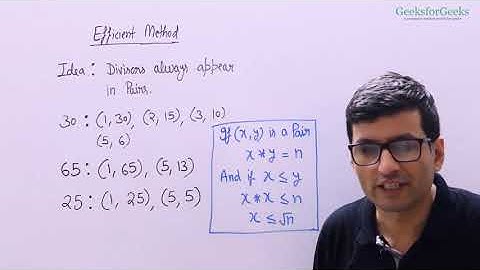 GeeksforGeeks
Efficient Method
Idea : Divisors always appear
in Pairs.
30 : (1, 30), (2, 15), (3, 10)
(5, 6)
65 : (1, 65), (5, 13)
25 : (1, 25), (5, 5)
If (x, y) is a Pair
x * y = n
And if x ≤ y
x * x ≤ n
x ≤ √n